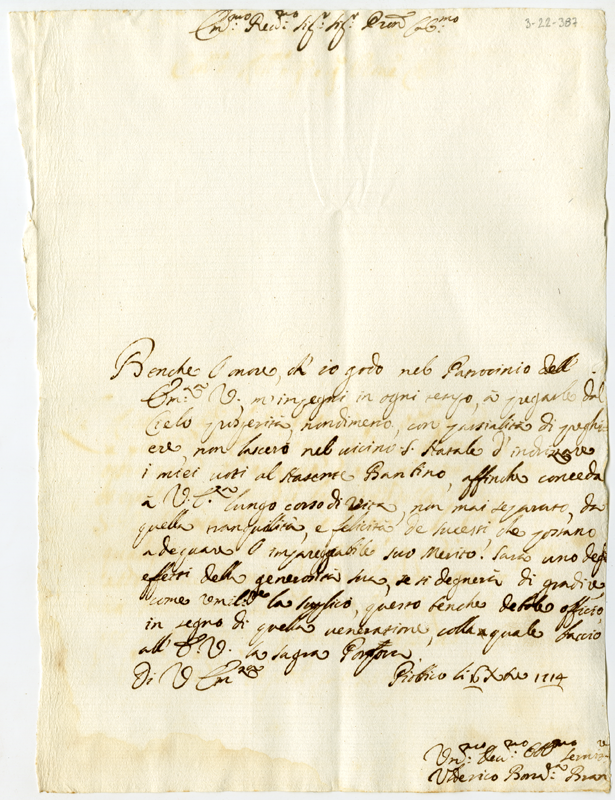 Em.mo Rev.mo Sig.r Sig.r Pron Col.mo
3-22-387
Benche l'onore, ch'io godo nel Patrocinio dell'
Em.za V. m'impegni in ogni tempo, à pregarle dal
Cielo prosperità, nondimeno, con parzialità di preghi
ere, non lascerò nel vicino S. Natale d'indrizzare
i miei voti al Nascente Bambino, affinche conceda
à V. E.za lungo corso di vita, non mai separato, da
quella tranquillità, e felicità de sucessi, che possano
adeguare l'impareggiabile suo Merito! Sarà uno degl'
effetti della generosità sua, se si degnerà di gradire
come umilm.te la supplico, questo benche debole officio,
in segno di quella venerazione, colla quale baccio
all' E. V. la sagra Porpora
Di V. Em.za
Piobico li Xbre 1714
Um.mo Dev.mo Obb.mo Servit
Uderico Bran